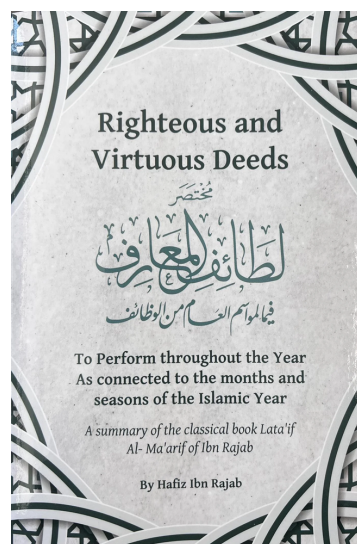 Righteous and
Virtuous Deeds
مُخْتَصَر
لَطَائِفُ الْمَعَارِفِ
فيما لمواسم العام من الوظائف
To Perform throughout the Year
As connected to the months and
seasons of the Islamic Year
A summary of the classical book Lata'if
Al- Ma'arif of Ibn Rajab
By Hafiz Ibn Rajab